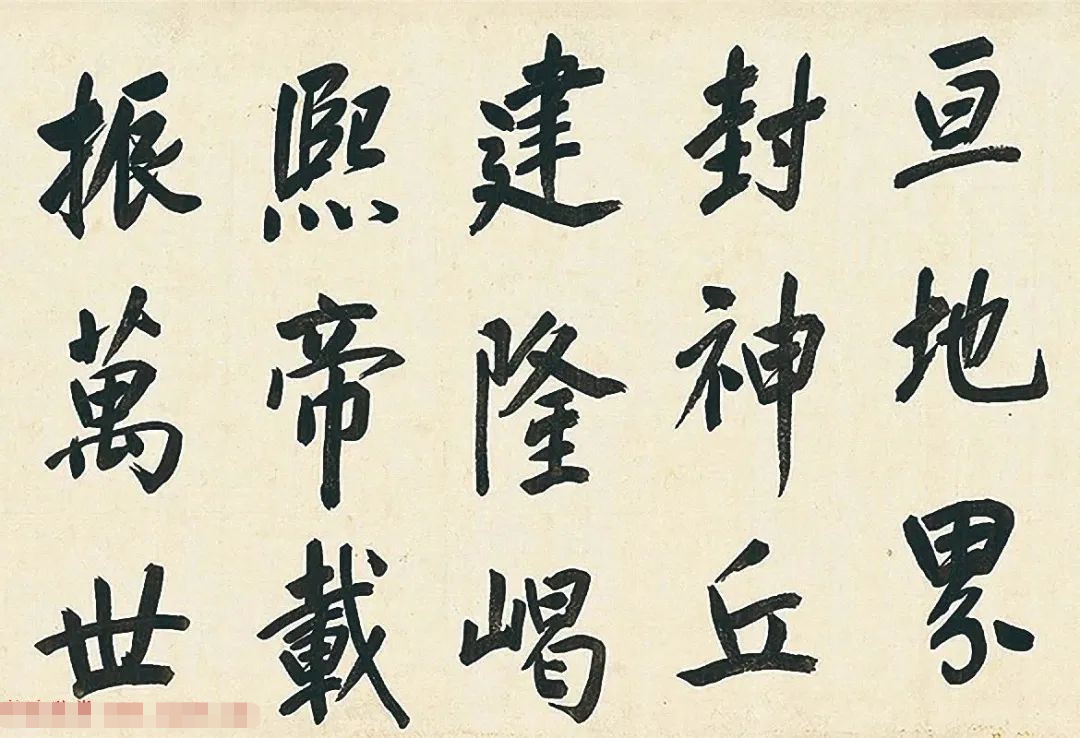 亘地界
封神丘
建隆嵑
熙帝載
振萬世